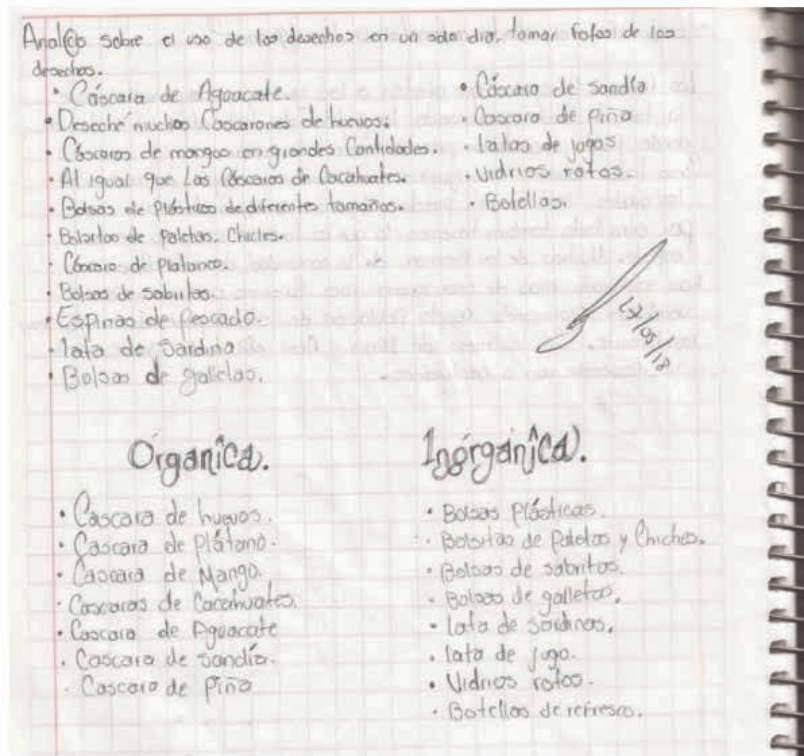 sobre el uso de los desechos en un solo día, tomar fotos de los
desechos.
• Cáscara de Aguacate.
• Deseché muchos Cascarones de huevos.
• Cáscaras de mangos en grandes Cantidades.
• Al igual que Las Cáscaras de Cacahuates.
• Bolsas de plásticos de diferentes tamaños.
• Bolsitas de Paletas. Chicles.
• Cáscara de platanos.
• Bolsas de sabritas.
• Espinas de Pescado.
• lata de Sardina
• Bolsas de galletas.
• Cáscara de sandía
• Cascara de piña
• latas de jogos
• Vidrios rotos.
• Botellas.
17/05/18
Organica.
• Cascara de huevos.
• Cascara de Plátano.
• Cascara de Mango.
• Cascaras de Cacahuates.
• Cascara de Aguacate
• Cascara de sandía.
• Cascara de Piña
Inorgánica.
• Bolsas Plásticas.
• Bolsitas de Paletas y Chicles.
• Bolsas de sabritas.
• Bolsas de galletas.
• lata de sardinas.
• lata de jugo.
• Vidrios rotos.
• Botellas de refresco.